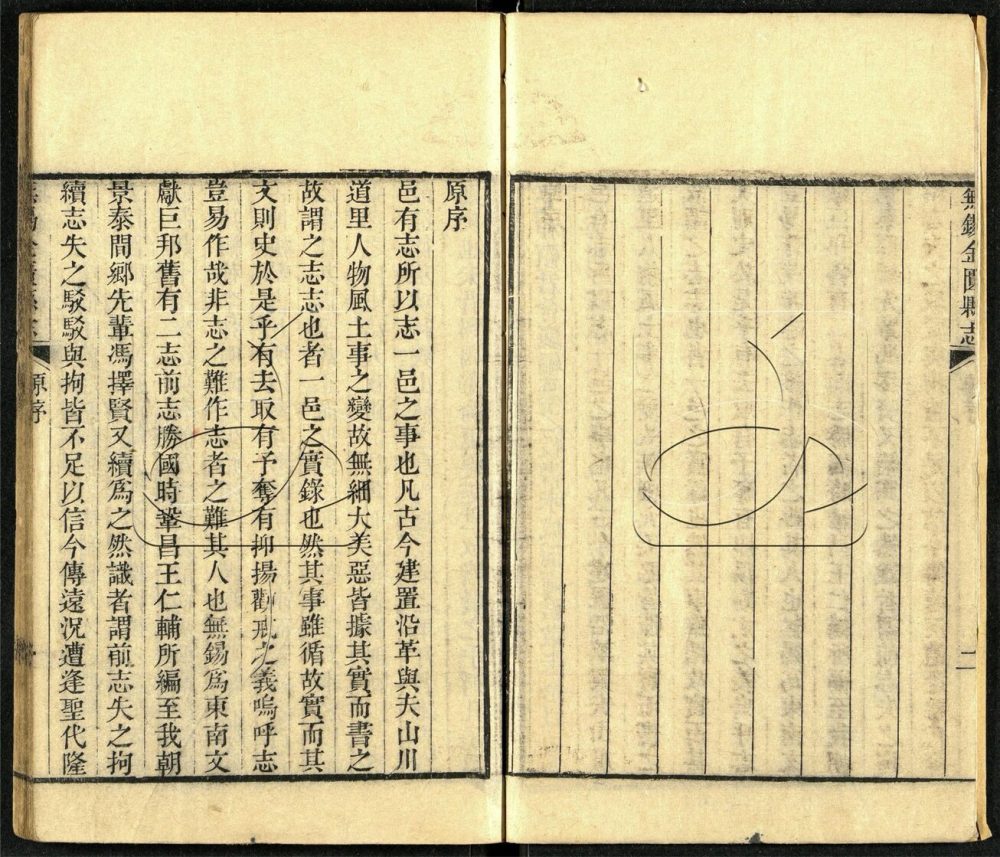 無錫金匱縣志
二
原序
邑有志所以志一邑之事也凡古今建置沿革與夫山川
道里人物風土事之變故無細大美惡皆據其實而書之
故謂之志志也者一邑之實錄也然其事雖循故實而其
文則史於是乎有去取有予奪有抑揚勸戒之義嗚呼志
豈易作哉非志之難作志者之難其人也無錫爲東南文
獻巨邦舊有二志前志勝國時鞏昌王仁輔所編至我朝
景泰間鄉先輩馮擇賢又續爲之然識者謂前志失之拘
續志失之駁駁與拘皆不足以信今傳遠況遭逢聖代隆
原序